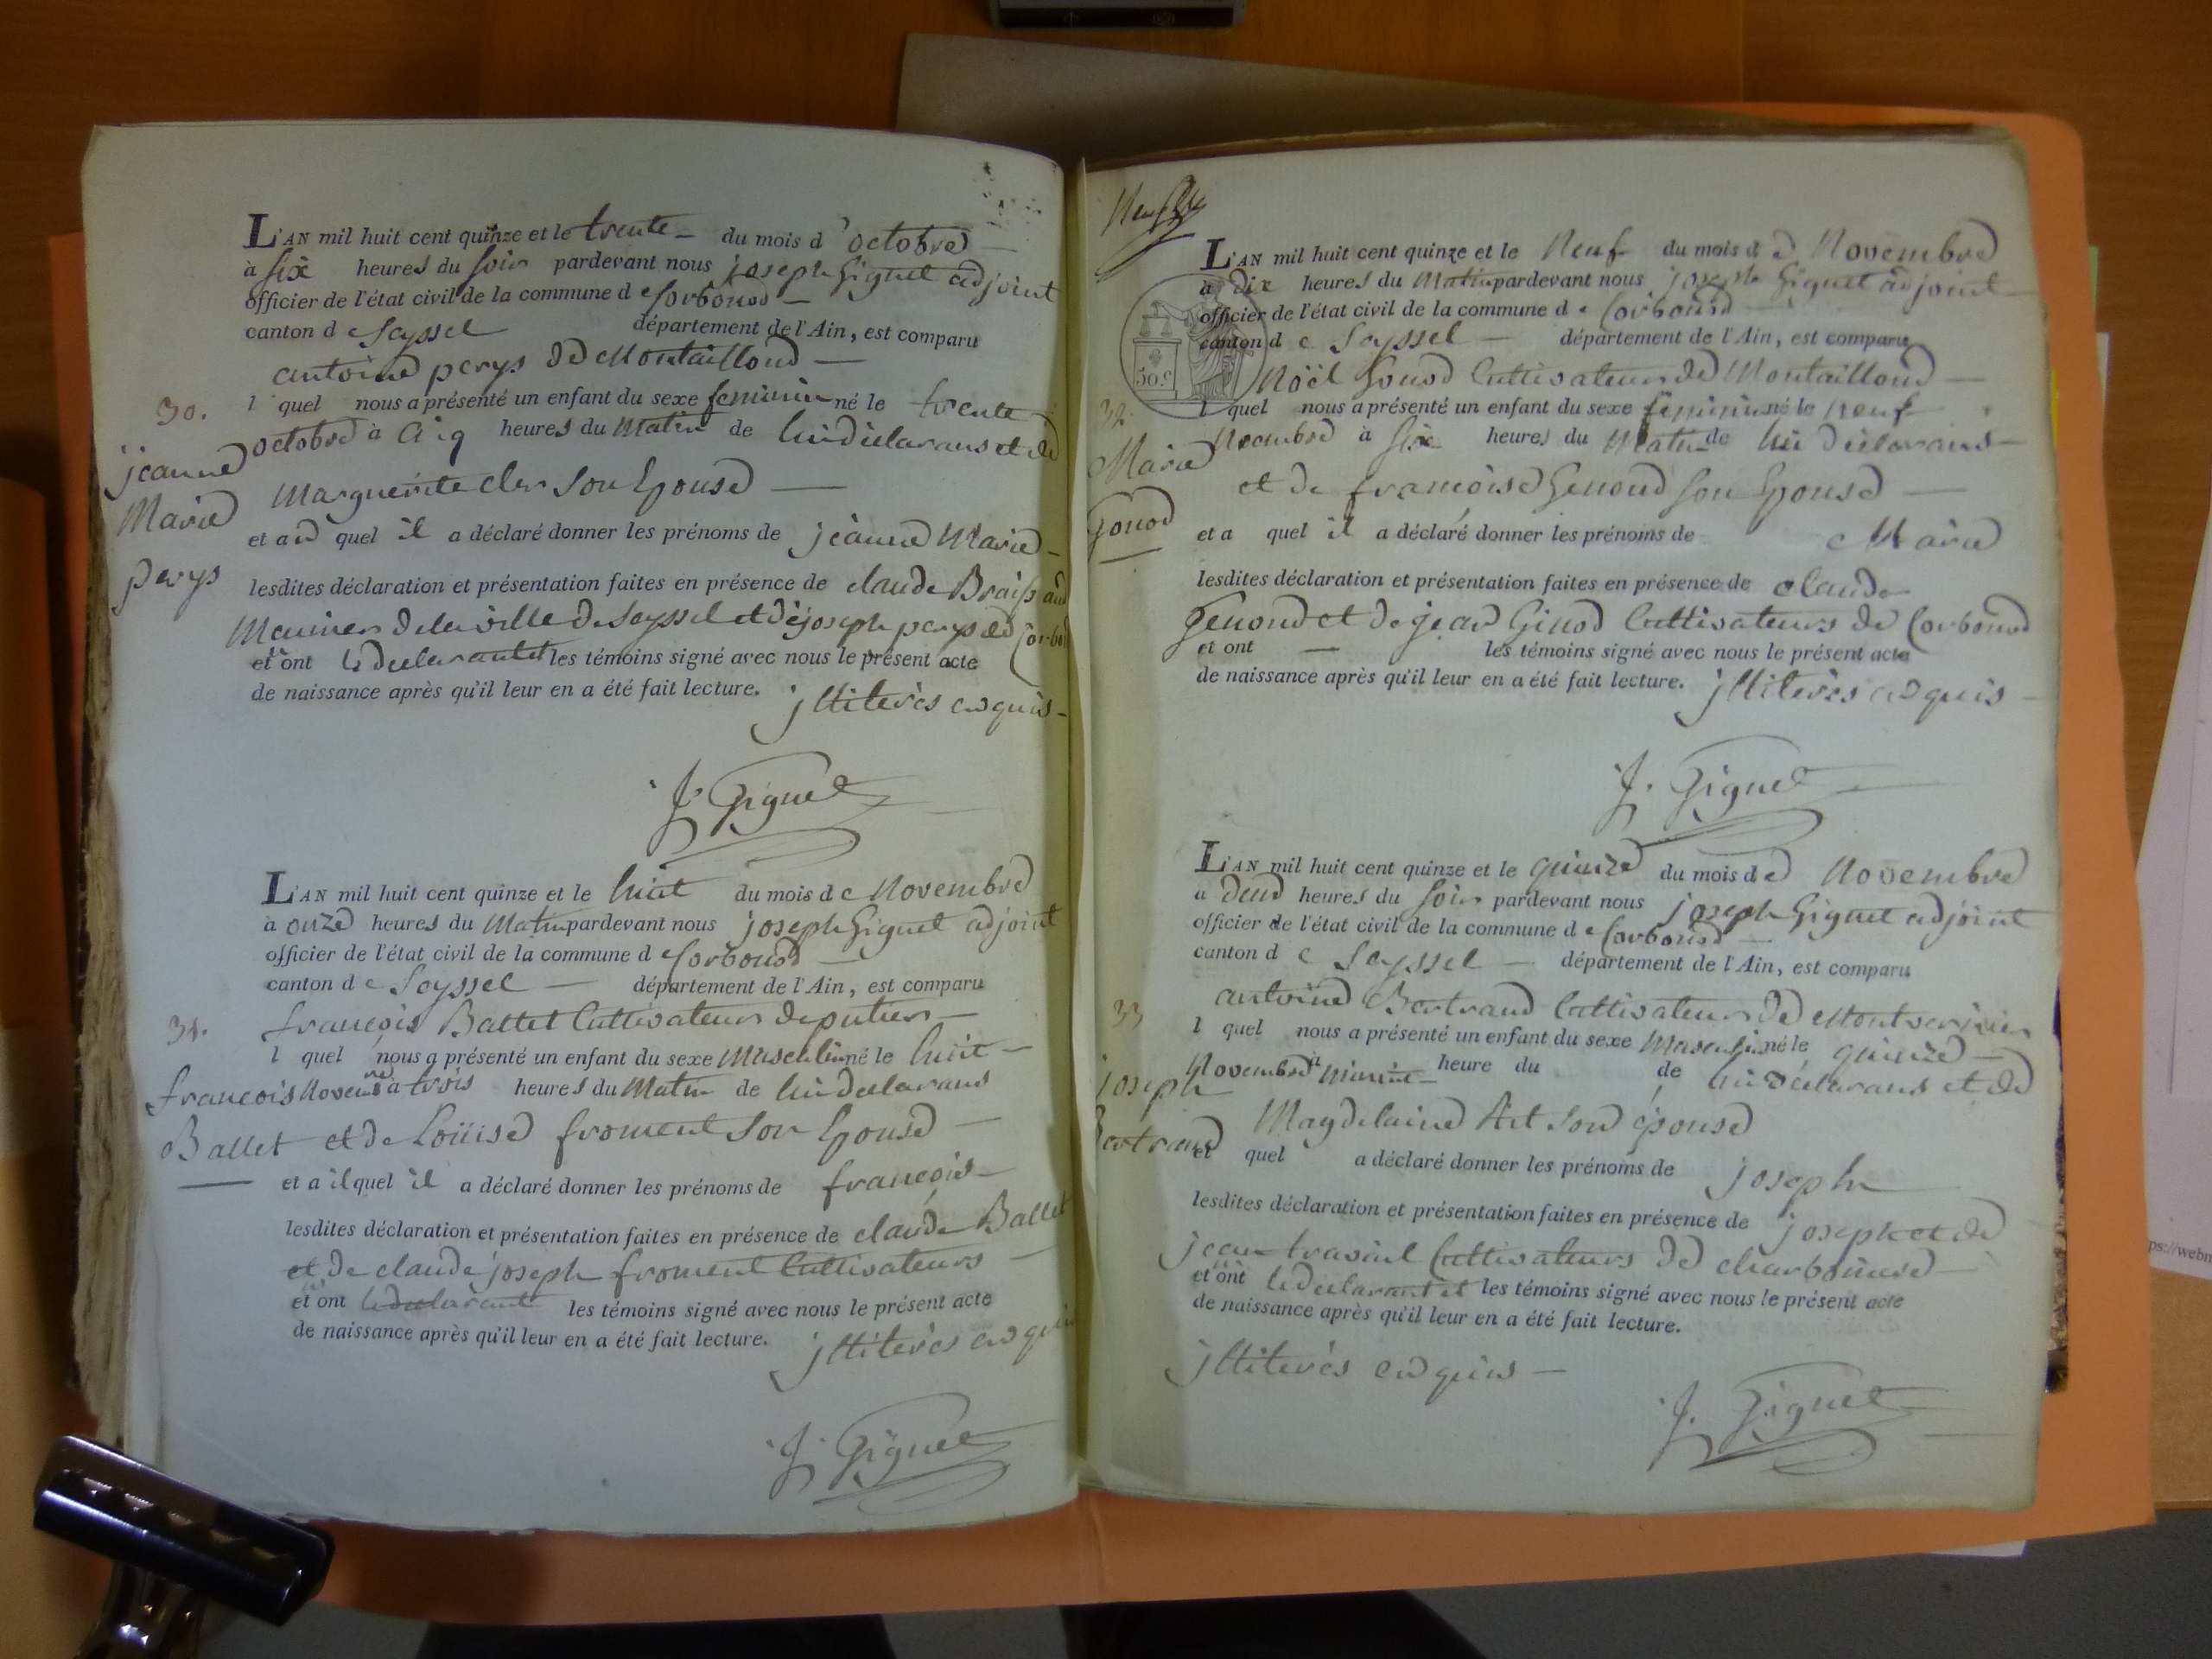 L'AN mil huit cent quinze et le trente du mois d'octobre
à six heures du soir pardevant nous joseph Giguet adjoint
officier de l'état civil de la commune de Corbonod
canton de Seyssel département de l'Ain, est comparu
antoine perys de Montailloud
30.
l quel nous a présenté un enfant du sexe feminin né le trente
octobre à cinq heures du Matin de lui déclarans et de
jeanne
Marguerite cler son Epouse
Marie
et au quel il a déclaré donner les prénoms de jeanne Marie
perys
lesdites déclaration et présentation faites en présence de claude
Meunier de la ville de Seyssel et de joseph perys de
et ont le declarant et les témoins signé avec nous le présent acte
de naissance après qu'il leur en a été fait lecture. jlliterés enquis
J. Giguet
L'AN mil huit cent quinze et le huit du mois de Novembre
à onze heures du Matin pardevant nous joseph Giguet adjoint
officier de l'état civil de la commune de Corbonod
canton de Seyssel département de l'Ain, est comparu
francois Ballet Cultivateur de putier
31.
l quel nous a présenté un enfant du sexe Masculin né le huit
Novembre à trois heures du Matin de lui declarans
francois
Ballet
et de Loüise froment son Epouse
et a il quel il a déclaré donner les prénoms de francois
lesdites déclaration et présentation faites en présence de claude Ballet
et de claude joseph froment Cultivateurs
et ont le declarant les témoins signé avec nous le présent acte
de naissance après qu'il leur en a été fait lecture. jlliterés enquis
J. Giguet
L'AN mil huit cent quinze et le Neuf du mois de Novembre
à dix heures du Matin pardevant nous joseph Giguet adjoint
officier de l'état civil de la commune de Corbonod
canton de Seyssel département de l'Ain, est comparu
50 c
Noël Gonod Cultivateur de Montailloud
32.
l quel nous a présenté un enfant du sexe feminin né le neuf
Novembre à six heures du Matin de lui déclarans
Marie
et de francoise Genoud son Epouse
Gonod
et a quel il a déclaré donner les prénoms de Marie
lesdites déclaration et présentation faites en présence de claude
Genoud et de jean Ginod Cultivateurs de Corbonod
et ont les témoins signé avec nous le présent acte
de naissance après qu'il leur en a été fait lecture. jlliterés enquis
J. Giguet
L'AN mil huit cent quinze et le quinze du mois de Novembre
à deux heures du soir pardevant nous joseph Giguet adjoint
officier de l'état civil de la commune de Corbonod
canton de Seyssel département de l'Ain, est comparu
antoine Bertrand Cultivateur de
33
l quel nous a présenté un enfant du sexe Masculin né le quinze
Novembre à minuit heure du de lui déclarans et de
joseph
Bertrand
Magdelaine Art son épouse
et quel a déclaré donner les prénoms de joseph
lesdites déclaration et présentation faites en présence de joseph et de
jean travail Cultivateurs de charbonniere
et ont le declarant et les témoins signé avec nous le présent acte
de naissance après qu'il leur en a été fait lecture.
jlliterés enquis
J. Giguet